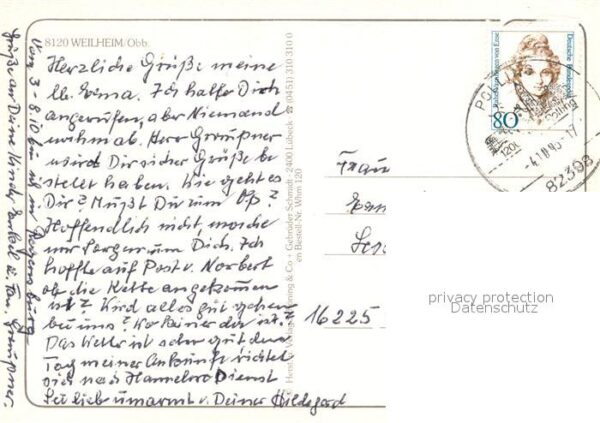 8120 WEILHEIM/Obb.
Herzliche Grüße meine
lb. Erna. Ich hatte Dich
angerufen, aber Niemand
nahm ab. Herr Greupner
wird Dir sicher Grüße be
stellt haben. Wie geht es
Dir? Mußt Du zum Op?
Hoffendlich nicht, mache
mir Sorgen um Dich. Ich
hoffe auf Post v. Norbert
ob die Kette angekommen
ist? Wird alles gut gehen
bei uns? Wo keiner da ist.
Das Wetter ist sehr gut den
Tag meiner Ankunft richtet
sich nach Hannelore Dienst
Sei lieb umarmt v. Deiner Hildegard
Vom 3-8.10 bin ich in Regensburg
Grüße an Deine Kinder Enkel u. Fam. Greupner.
Verlag Schöning & Co + Gebrüder Schmidt · 2400 Lübeck · ☎ (0451) 310 310 0
Bestell-Nr. Whm 120
Frau
16225
Deutsche Bundespost
80
POLLING
82398
privacy protection
Datenschutz